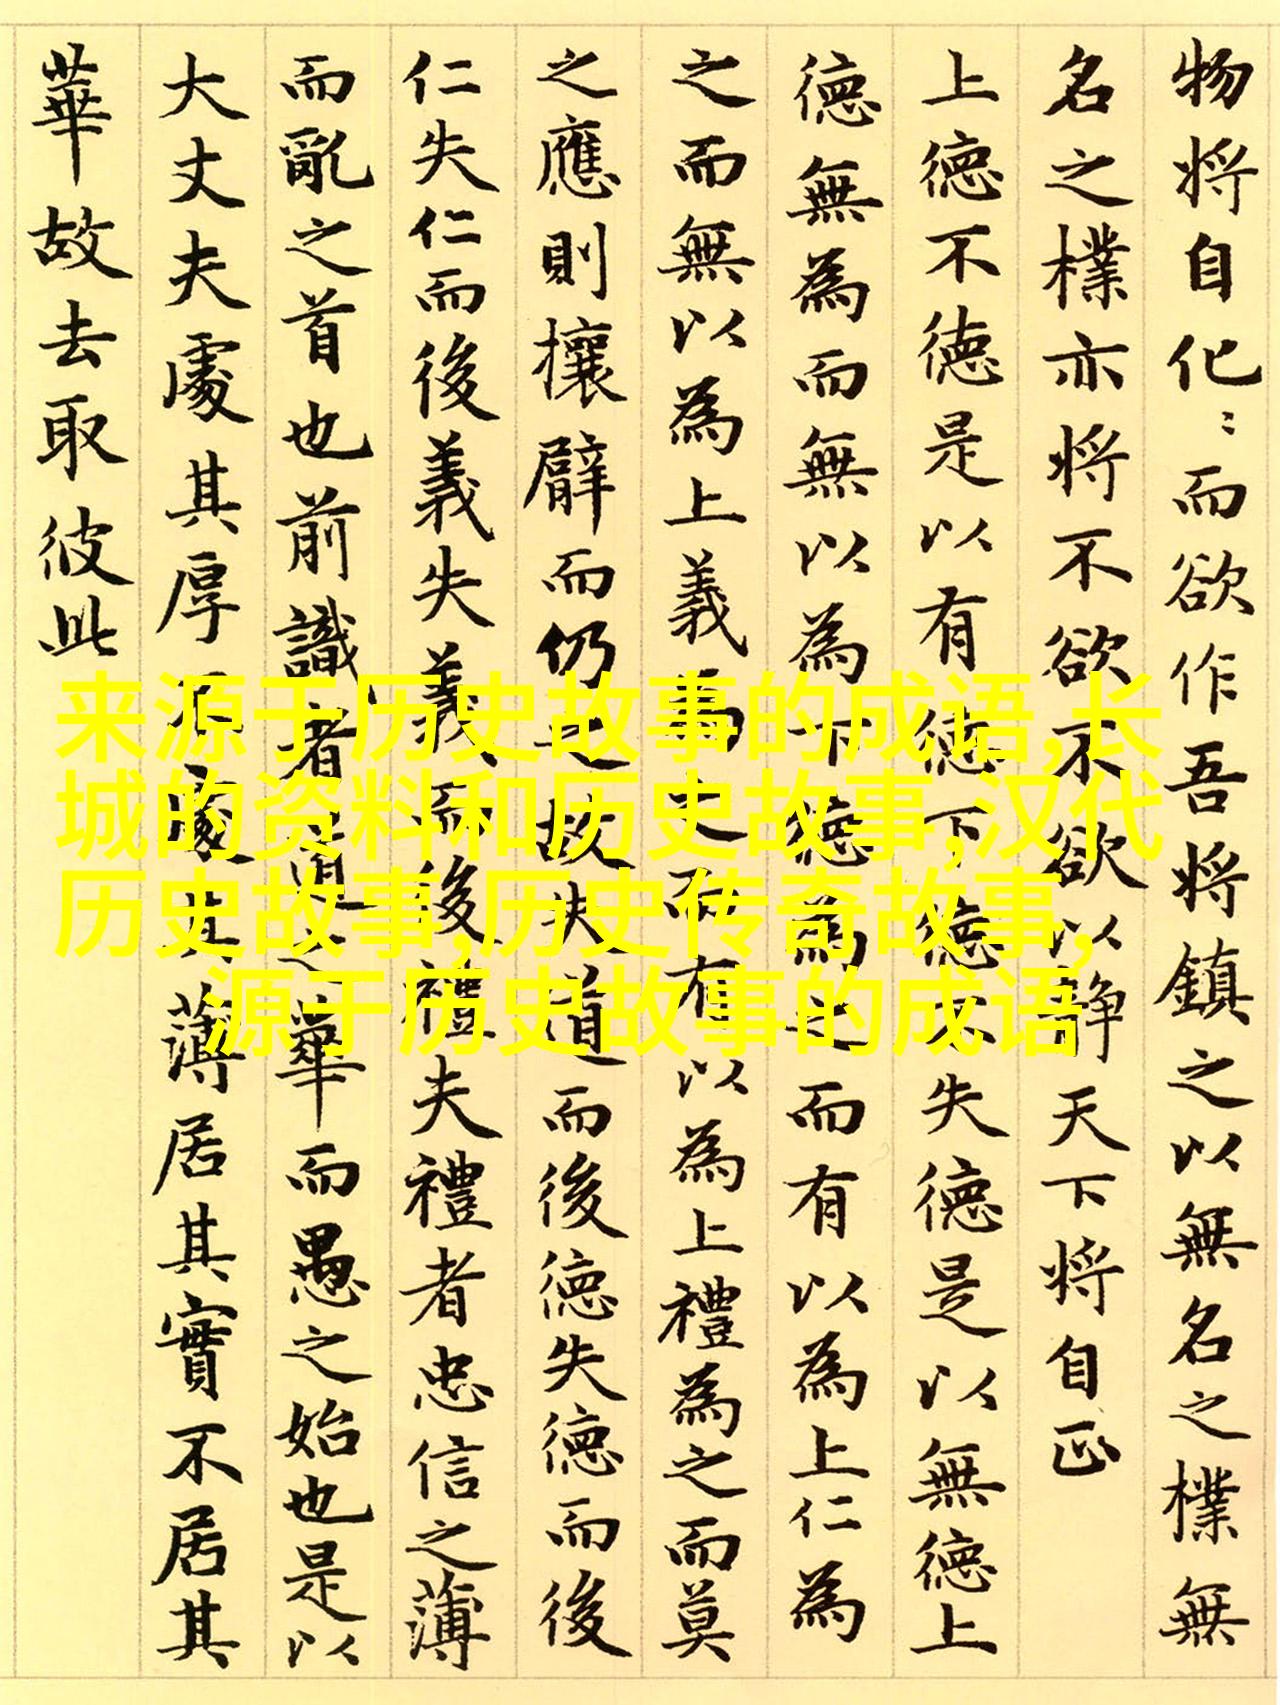 物将自化〻而欲作吾将鎮之以無名之樸無
名之樸亦将不欲不欲以静天下将自正
上德不德是以有德下德不失德是以無德上
德無為而無以為下德為之而有以為上仁為
之而無以為上義為之而有以為上禮為之而莫
之應則攘臂而仍之故失道而後德失德而後
仁失仁而後義失義而後禮夫禮者忠信之薄
而亂之首也前識者道之華而愚之始也是以
大丈夫處其厚不處其薄居其實不居其
華故去取彼此
来源于历史故事的成语,长
城的资料和历史故事,汉代
历史故事,历史传奇故事,
源于历史故事的成语